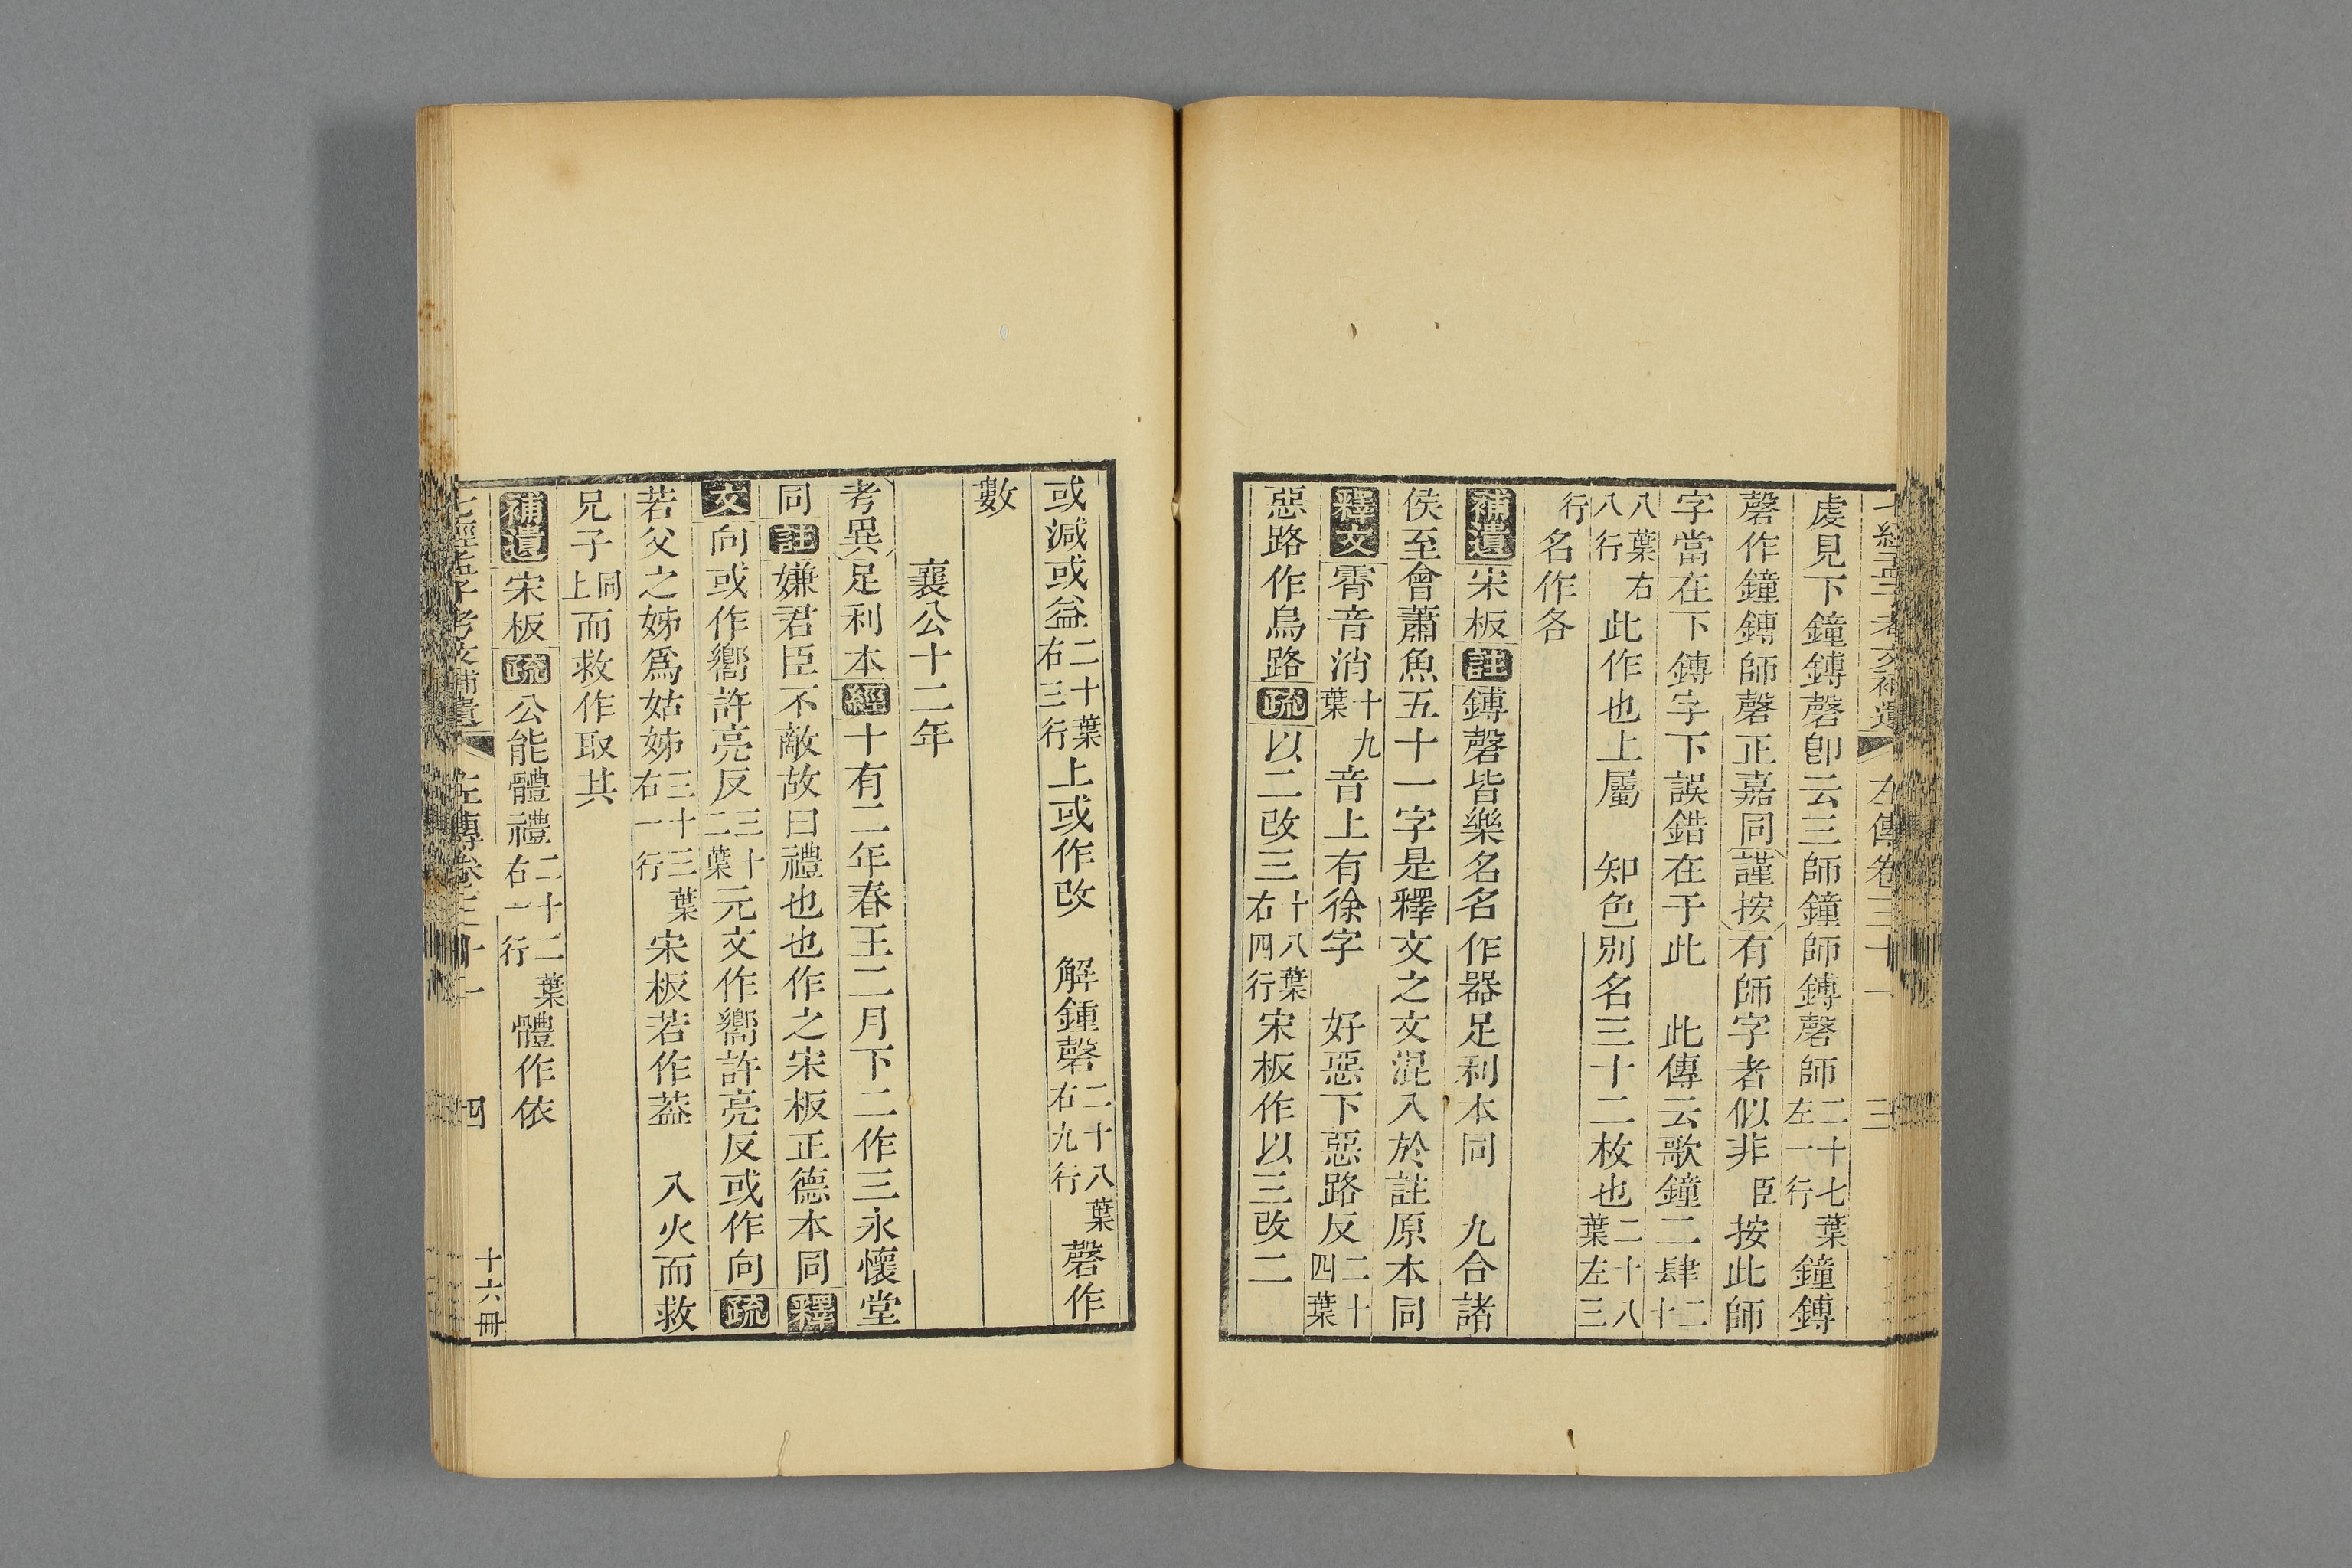 七經孟子考文補遺 左傳卷三十一 三
處見下鐘鎛磬卽云三師鐘師鎛磬師二十七葉左一行鐘鎛
磬作鐘鎛師磬正嘉同謹按有師字者似非臣按此師
字當在下鎛字下誤錯在于此 此傳云歌鐘二肆二十
八葉右八行此作也上屬 知色別名三十二枚也二十八葉左三
行名作各
補遺宋板註鎛磬皆樂名名作器足利本同 九合諸
侯至會蕭魚五十一字是釋文之文混入於註原本同
釋文霄音消十九葉音上有徐字 好惡下惡路反二十四葉
惡路作烏路疏以二改三十八葉右四行宋板作以三改二
或減或益二十葉右三行上或作改 解鍾磬二十八葉右九行磬作
數
襄公十二年
考異足利本經十有二年春王二月下二作三永懷堂
同註嫌君臣不敵故曰禮也也作之宋板正德本同釋
文向或作嚮許亮反三十二葉元文作嚮許亮反或作向疏
若父之姊爲姑姊三十三葉右一行宋板若作葢 入火而救
兄子同上而救作取其
補遺宋板疏公能體禮二十二葉右一行體作依
七經孟子考文補遺 左傳卷三十一 四 十六冊